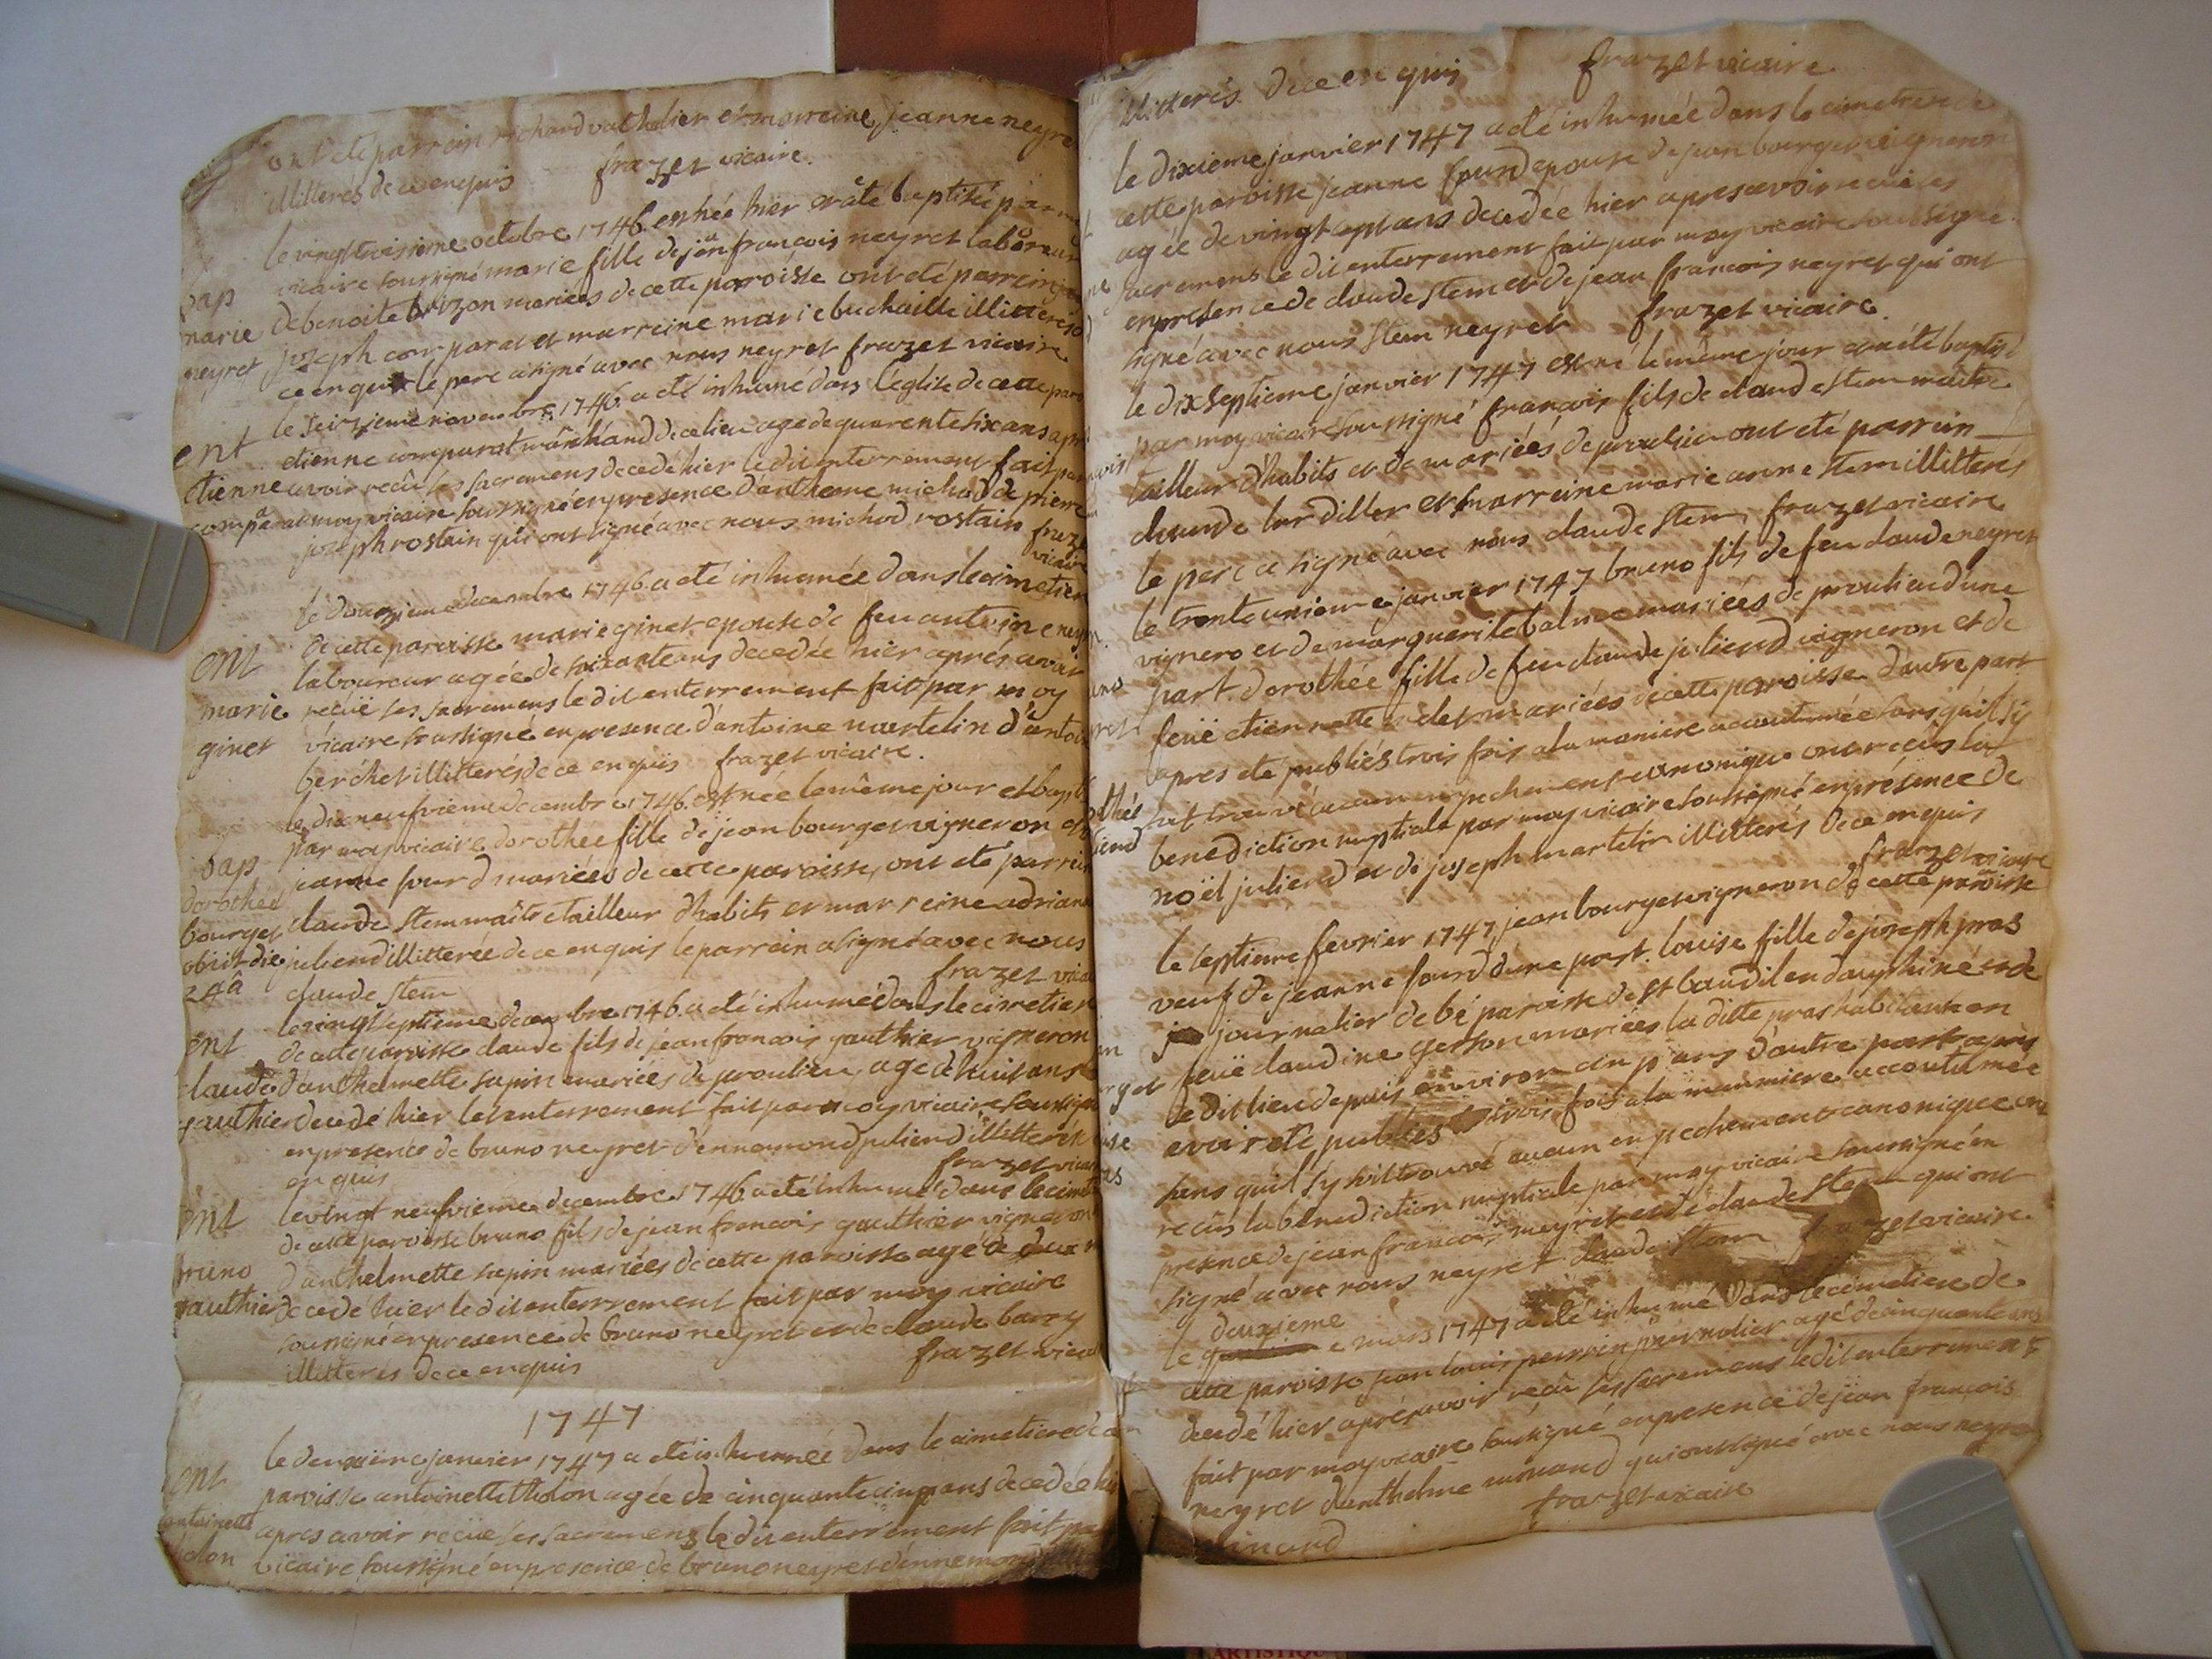 ont eté parrein richard vathelier et marreine jeanne neyret
illitterés de ce enquis frazet vicaire.
le vingt troisieme octobre 1746 est née hier et a été baptisée par
vicaire soussigné marie fille de jean francois neyret laboureur
bap
de benoite brizon mariées de cette paroisse ont eté parrein
marie
joseph comparat et marreine marie buchaille illitteres
neyret
ce enquis le pere a signé avec nous neyret frazet vicaire
le seizieme novembre 1746 a eté inhumé dans l'église de cette paro
ent
etienne comparat marchand de ce lieu agé de quarente six ans apres
etienne
avoir recû ses sacremens decedé hier le dit enterrement fait par
comparat
moy vicaire soussigné en presence d'anthelme michod de pierre
joseph rostain qui ont signé avec nous michod rostain frazet
vicaire
le douzieme decembre 1746 a eté inhumée dans le cimetiere
de cette paroisse marie ginet epouse de feu antoine neyr
ent
laboureur agée de soixante ans decedée hier aprés avoir
marie
recüe ses sacremens le dit enterrement fait par moy
ginet
vicaire soussigné en presence d'antoine martelin d'antoi
berchet illitterés de ce enquis frazet vicaire.
le dix neufvieme decembre 1746 est née le même jour et bapt
par moy vicaire dorothee fille de jean bourget vigneron et
bap
jeanne sourd mariées de cette paroisse, ont eté parrein
dorothée
claude stem maître tailleur d'habits et marreine adriane
bourget
juliend illitterée de ce enquis le parrein a signé avec nous
obiit die
24â
claude stem frazet vicai
le vingt septieme decembre 1746 a eté inhumé dans le cimetiere
ent
de cette paroisse claude fils de jean francois gauthier vigneron
claude
d'anthelmette sapin mariées de proulieu, agé de huit ans
gauthier
decedé hier le enterrement fait par moy vicaire soussigné
en presence de bruno neyret d'ennemond juliend illitterés
enquis frazet vicaire
le vingt neufvieme decembre 1746 a eté inhumé dans le cimeti
ent
de cette paroisse bruno fils de jean francois gauthier vigneron
bruno
d'anthelmette sapin mariées de cette paroisse agé de deux
gauthier
decedé hier le dit enterrement fait par moy vicaire
soussigné en presence de bruno neyret et de claude barry
illitteres de ce enquis frazet vicai
1747
le deuxieme janvier 1747 a eté inhumée dans le cimetiere de
ent
paroisse antoinette tholon agée de cinquante cinq ans decedée hi
antoinette
apres avoir recüe ses sacremens le dit enterrement fait par
tholon
vicaire soussigné en presence de bruno neyret d'ennemond
illitterés de ce enquis frazet vicaire
le dixieme janvier 1747 a eté inhumée dans le cimetiere de
cette paroisse jeanne sourd epouse de jean bourget vigneron
agée de vingt sept ans decedée hier apres avoir recüe ses
sacremens le dit enterrement fait par moy vicaire soussigné
en presence de claude stem et de jean francois neyret qui ont
signé avec nous stem neyret frazet vicaire.
le dixseptieme janvier 1747 est né le même jour et a été baptisé
par moy vicaire soussigné francois fils de claude stem maitre
tailleur d'habits et de mariées de proulieu ont eté parrein
claude lardiller et marreine marie anne stem illitterés
le pere a signé avec nous claude stem frazet vicaire
le trente unieme janvier 1747 bruno fils de feu claude neyret
vignero et de marguerite balme mariées de proulieu d'une
part. dorothée fille de feu claude juliend vigneron et de
feuë etiennette mariées de cette paroisse d'autre part
apres eté publiés trois fois a la maniere accoutumée sans qu'il s'y
soit trouvé aucun empechement canonique ont recûs la
benediction nuptiale par moy vicaire soussigné en présence de
noël juliend et de joseph martelin illitterés de ce enquis
frazet vicaire
le septieme fevrier 1747 jean bourget vigneron de cette paroisse
veuf de jeanne sourd d'une part. louise fille de joseph pras
journalier de bé paroisse de st baudil en dauphiné et de
feuë claudine gerson mariées la ditte pras habitante en
ce dit lieu depuis environ cinq ans d'autre part apres
avoir eté publiés trois fois a la manniere accoutumée
sans qu'il s'y soit trouvé aucun empechement canonique ont
recûs la benediction nuptiale par moy vicaire soussigné en
presence de jean francois neyret et de claude stem qui ont
signé avec nous neyret claude stem frazet vicaire.
deuxieme
le mars 1747 a eté inhumé dans le cimetiere de
cette paroisse jean louis perrin journalier agé de cinquante ans
decedé hier aprés avoir recû ses sacremens le dit enterrement
fait par moy vicaire soussigné en presence de jean francois
neyret d'anthelme minand qui ont signé avec nous neyret
minand frazet vicaire